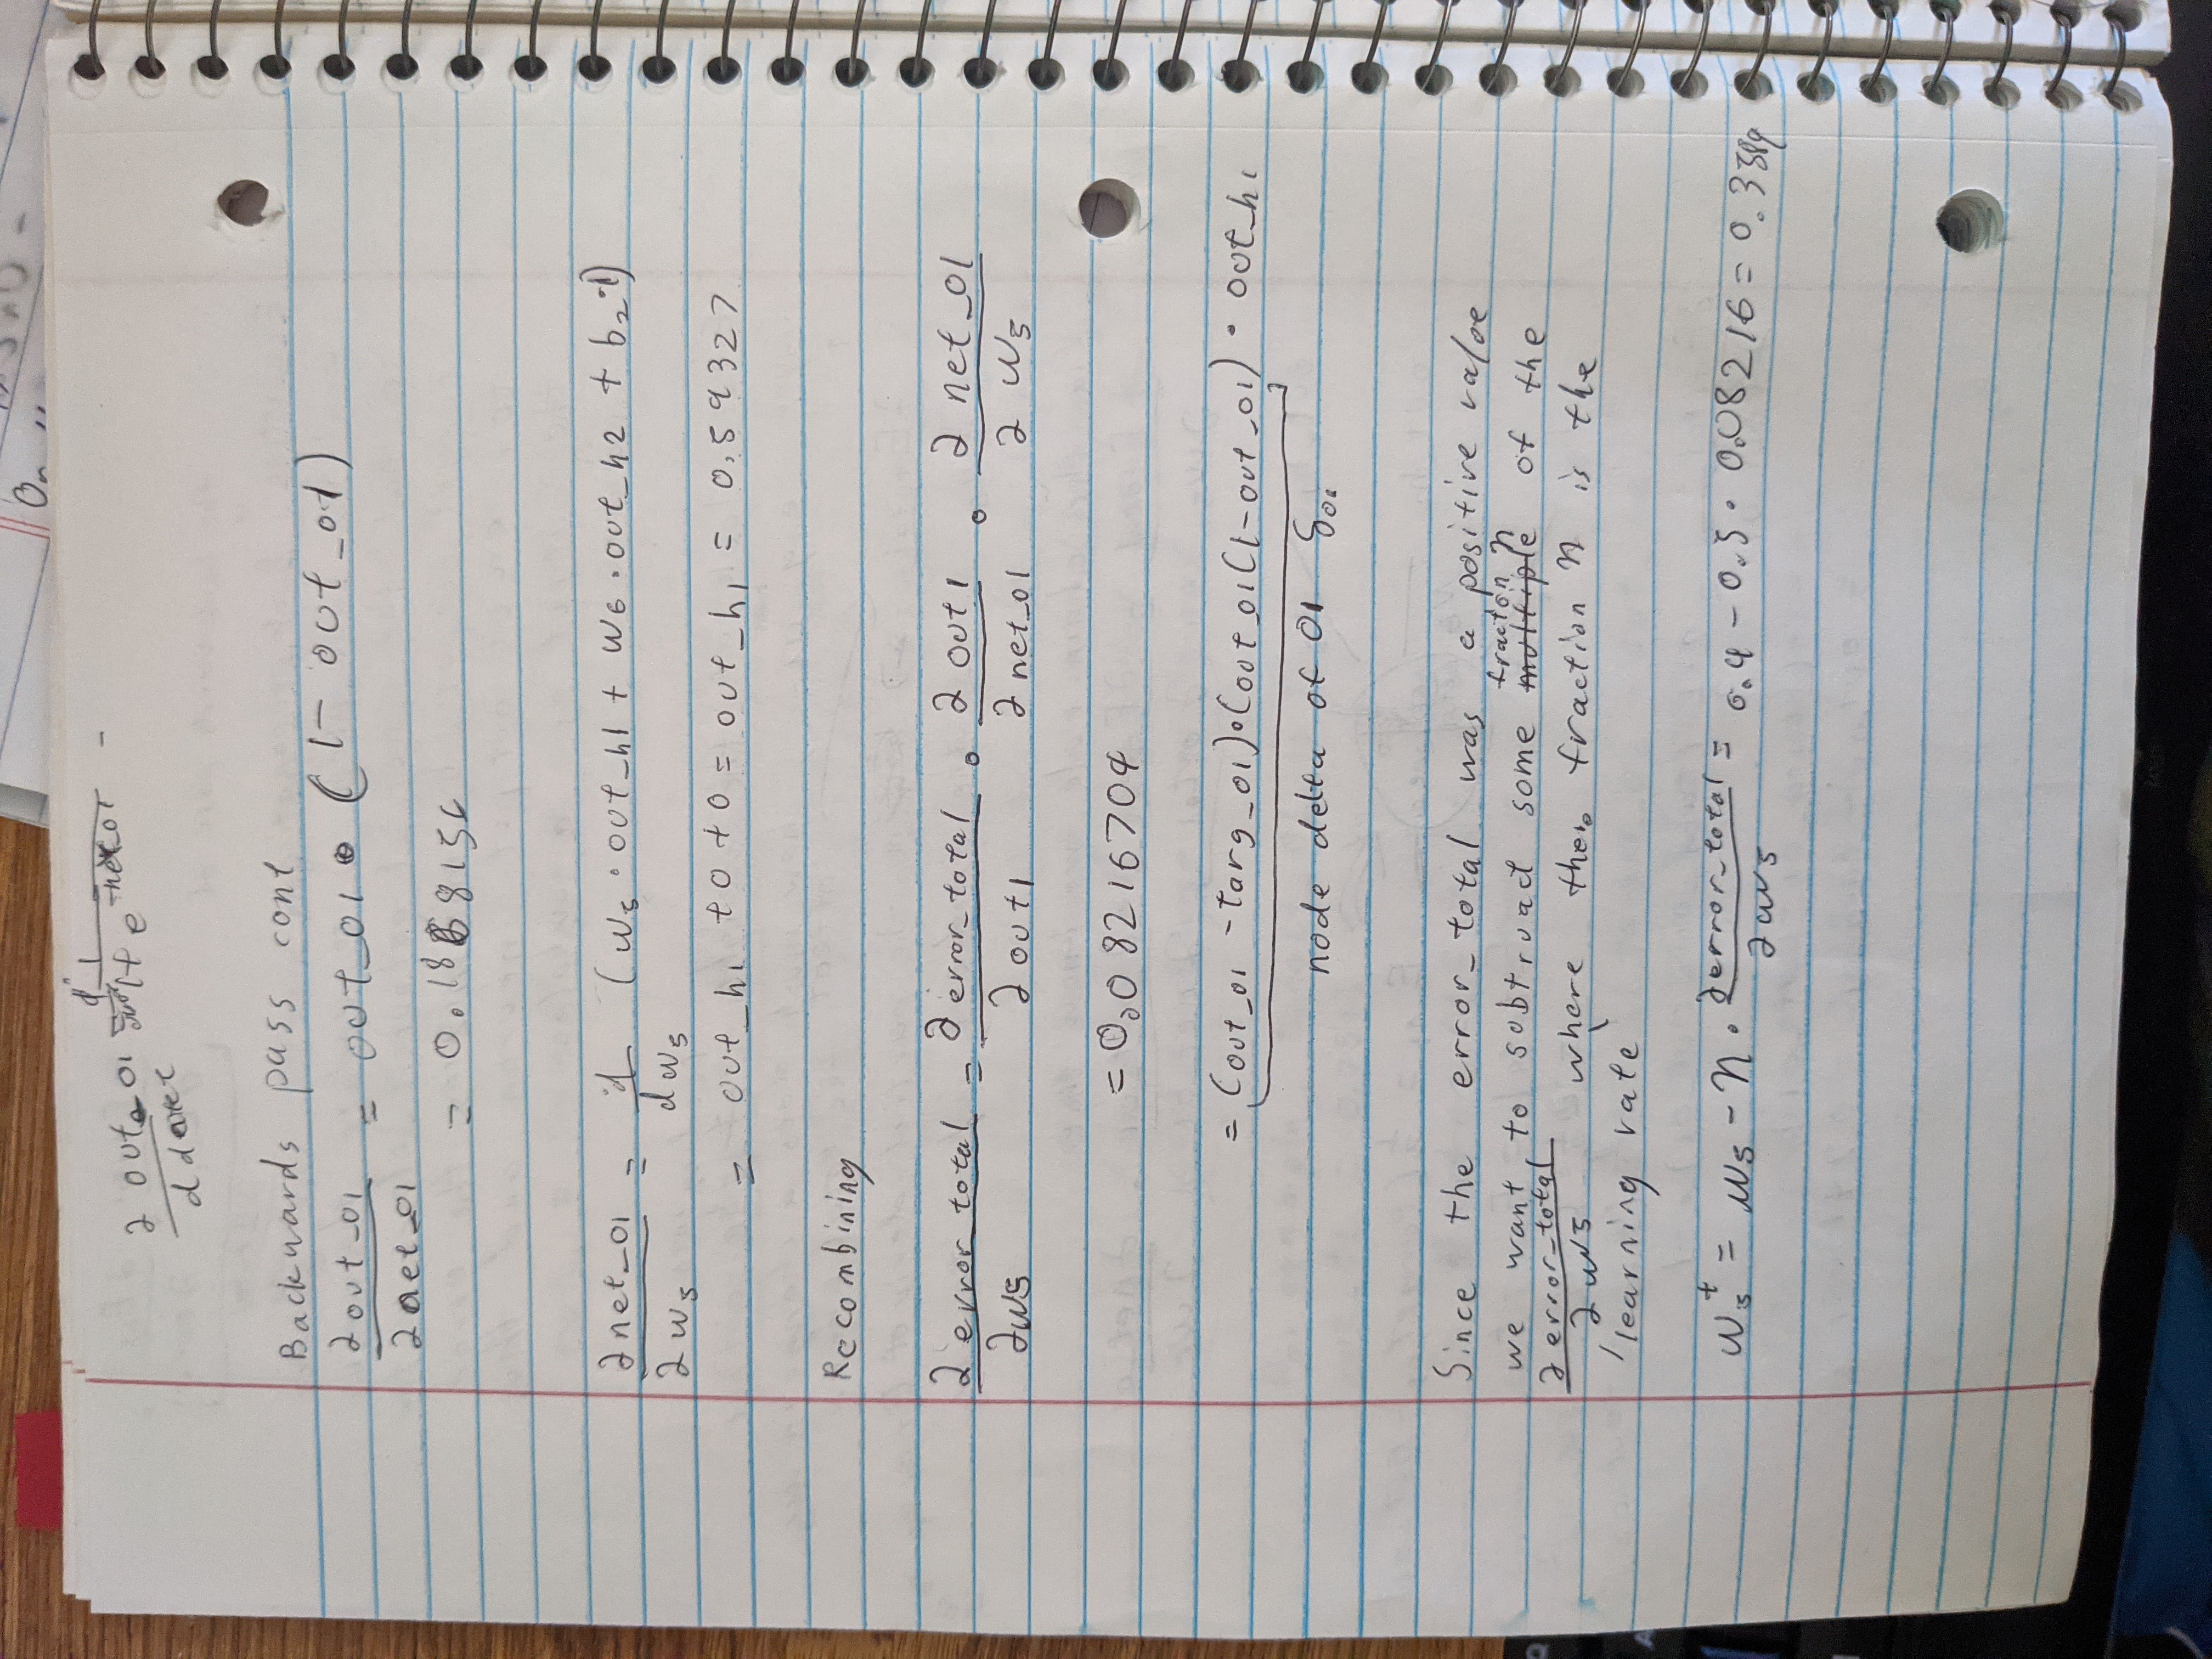 On
∂ out_o1 d 1 -
d net 1+ e^-net_o1
Backwards pass cont
∂out_o1 / ∂net_o1 = out_o1 • (1- out_o1)
= 0.1868156
∂net_o1 / ∂w₅ = d / dw₅ (w₅ • out_h1 + w6 • out_h2 + b₂•1)
= out_h₁ +0+0 = out_h₁ = 0.59327
Recombining
∂error total / ∂w5 = ∂error_total / ∂out1 • ∂out1 / ∂net_o1 • ∂net_o1 / ∂w5
= 0.08216704
= (out_o1 - targ_o1)•(out_o1(1-out_o1) • out_h1
node delta of o1 δo1
Since the error_total was a positive value
we want to subtruact some multiple fracton n of the
∂error_total / ∂w5 where the fraction n is the
'learning rate'
w₅⁺ = w5 - n • ∂error_total / ∂w5 = 0.4 - 0.5 • 0.08216 = 0.3589